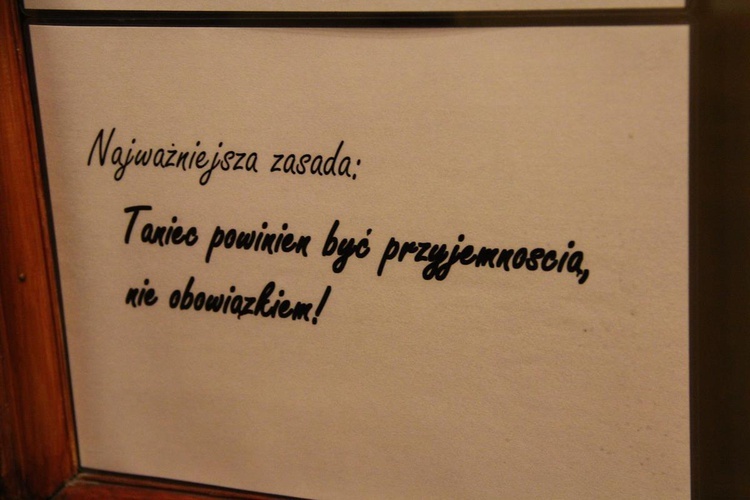 Najważniejsza zasada:
Taniec powinien być przyjemnoscią,
nie obowiązkiem!